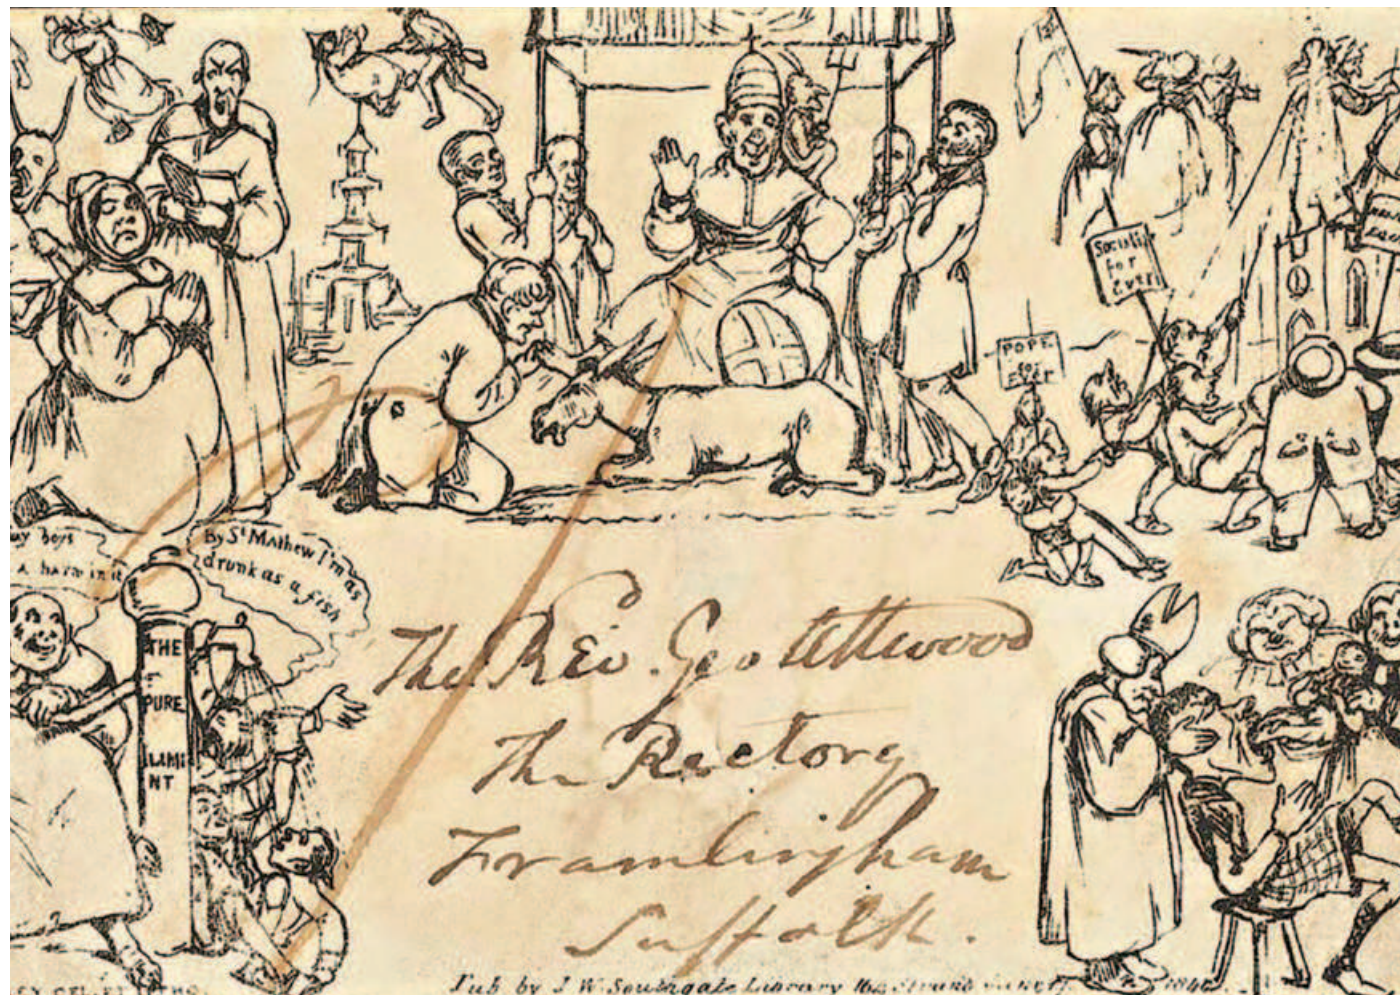 Socialis
for
Ever
POPE
for
Ever
my boys
A harm in it
By St Mathew I'm as
drunk as a fish
THE
PURE
LIMI
NT
The Rev. Geo Attwood
The Rectory
Framlingham
Suffolk.
Pub by J. W. Southgate Library 164 Strand